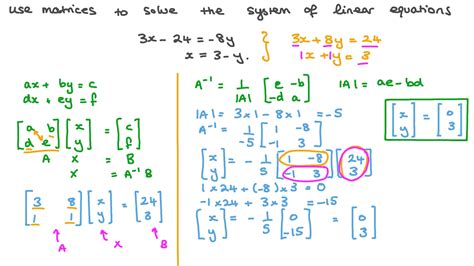 use matrices to solve the system of linear equations
3x - 24 = -8y
x = 3 - y.
3x + 8y = 24
1x + 1y = 3
ax + by = c
dx + ey = f
[a b
d e] [x
y] = [c
f]
A x = B
x = A⁻¹ B
[3 8
1 1] [x
y] = [24
3]
A x B
A⁻¹ = 1/|A| [e -b
-d a] |A| = ae - bd
|A| = 3 × 1 - 8 × 1 = -5
A⁻¹ = 1/-5 [1 -8
-1 3]
[x
y] = - 1/5 [1 -8
-1 3] [24
3]
1 × 24 + (-8) × 3 = 0
-1 × 24 + 3 × 3 = -15
[x
y] = - 1/5 [0
-15] = [0
3]
[x
y] = [0
3]